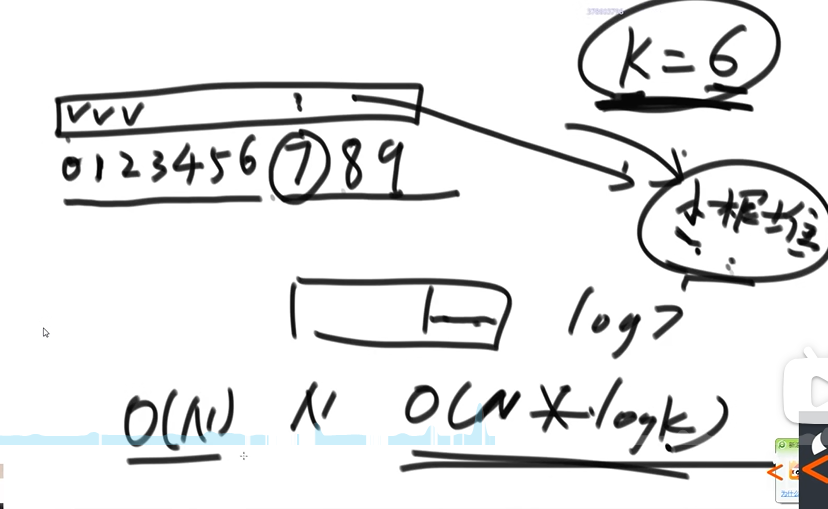 K = 6
VVV
0 1 2 3 4 5 6 7 8 9
小根堆
log7
O(N) N O(N * logk)
为什么